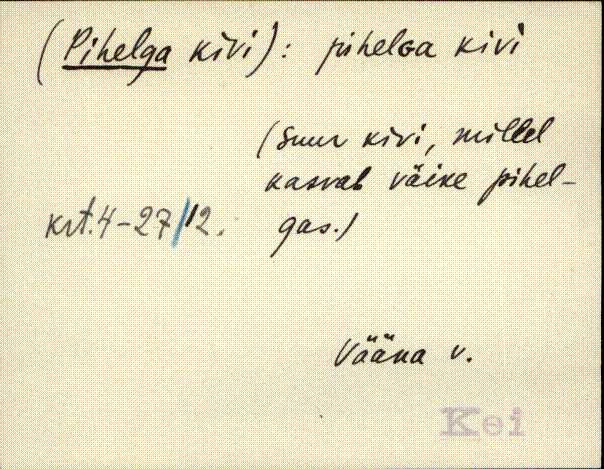 (Pihelga kivi): pihelga kivi
(Suur kivi, millel
kasvab väike pihel-
krt. 4-27/12. gas.)
Vääna v.
Kei